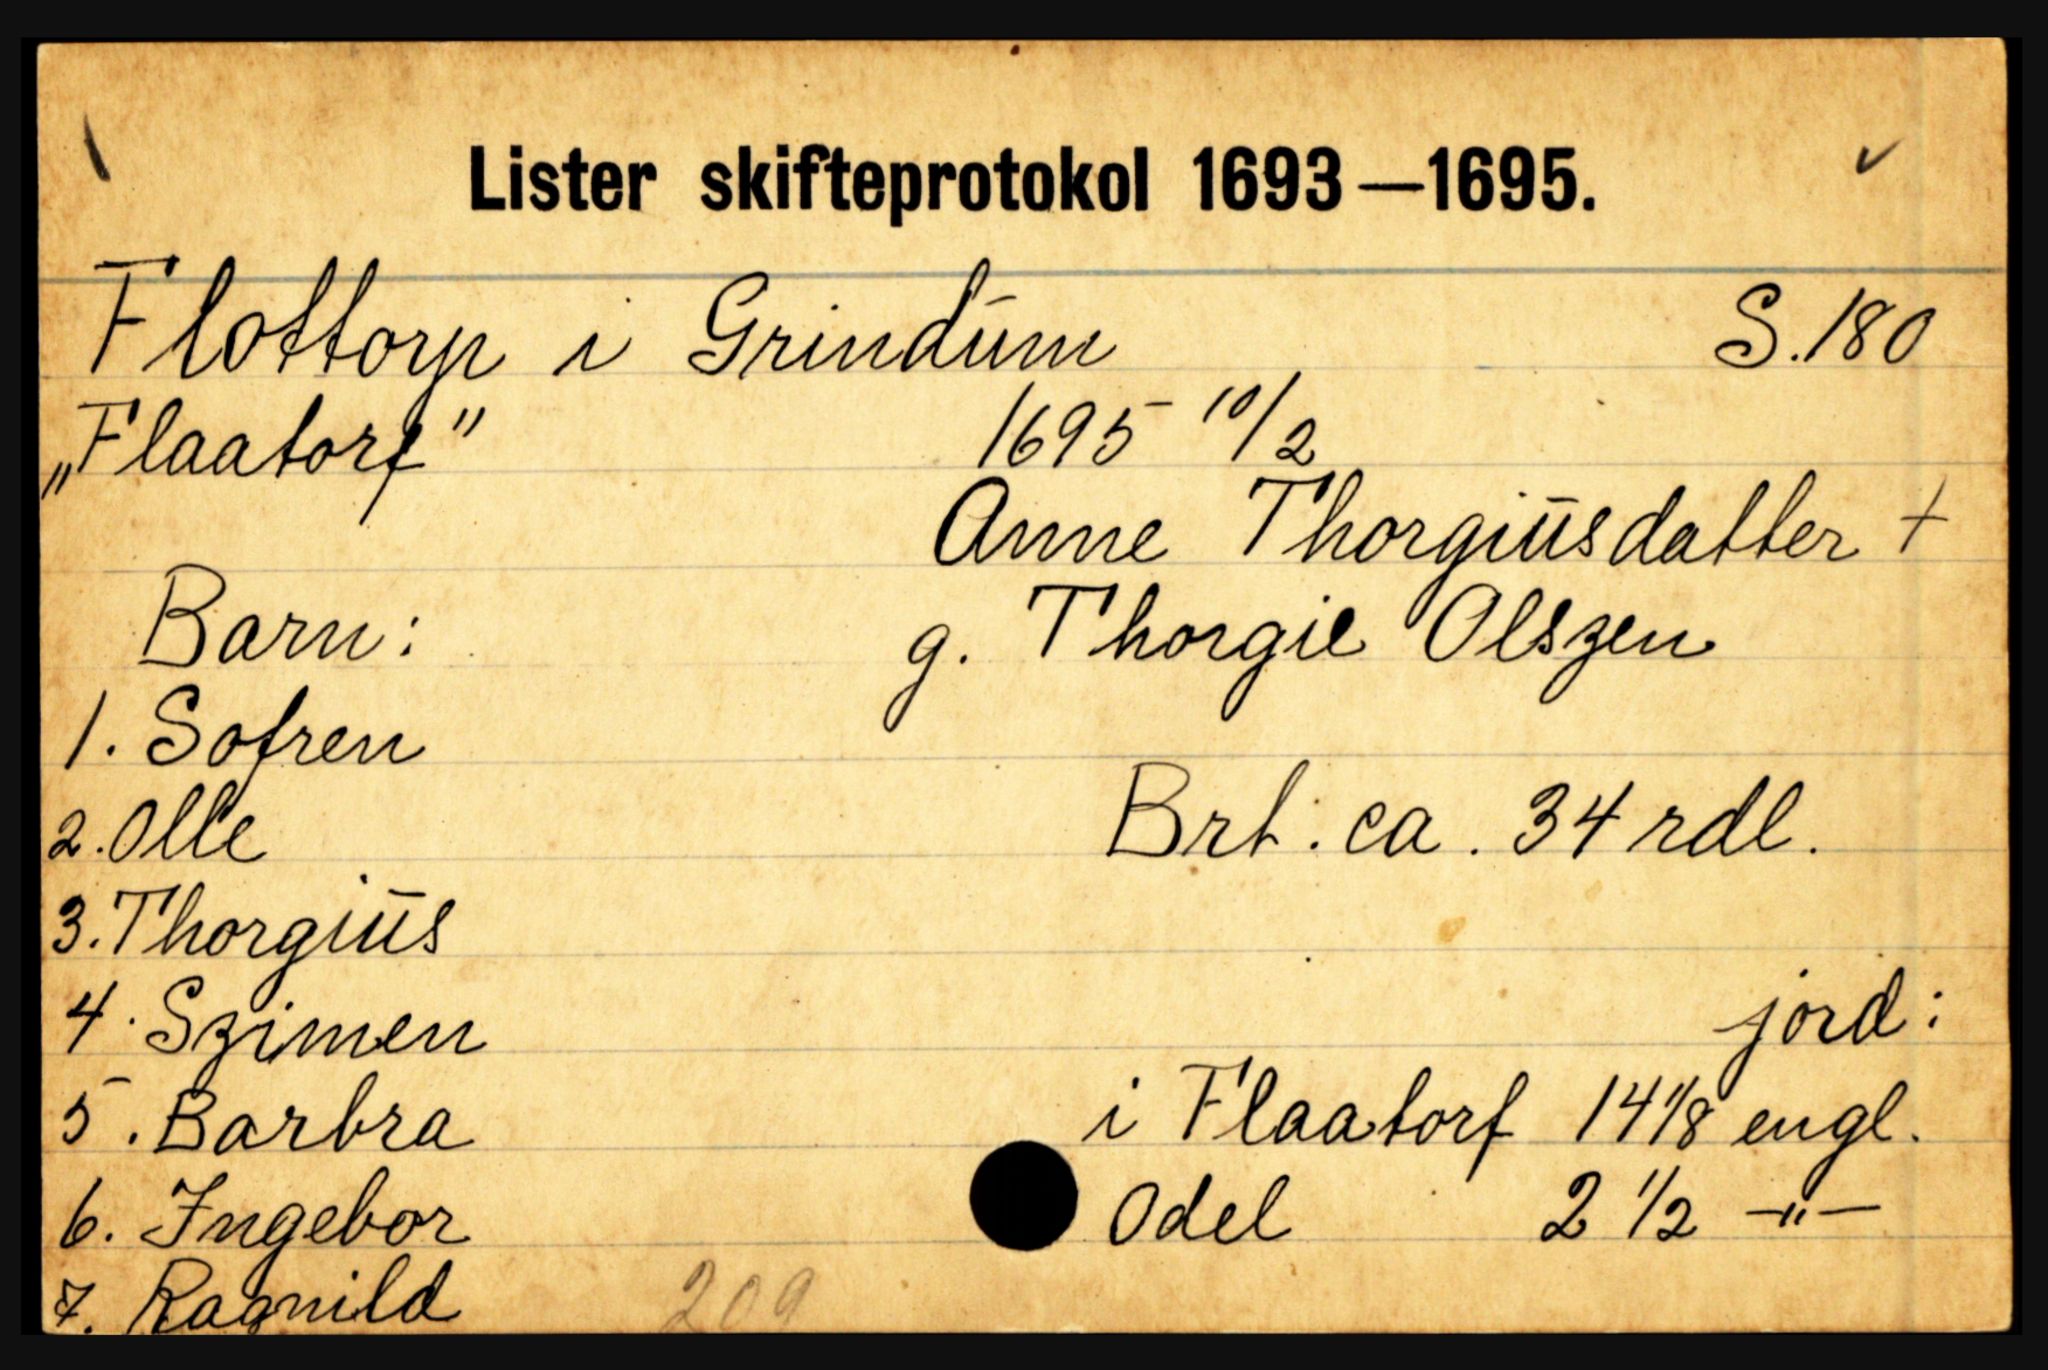 Lister skifteprotokol 1693—1695.
Flottorp i Grindum S. 180
„Flaatorf" 1695 10/2
Anne Thorgiusdatter +
Barn: g. Thorgie Olszen
1. Sofren
2. Olle Brt. ca. 34 rdl.
3. Thorgius
4. Szimen jord:
5. Barbra i Flaatorf 14 1/8 engl.
6. Ingebor Odel 2 1/2 —„—
7. Ragnild 209